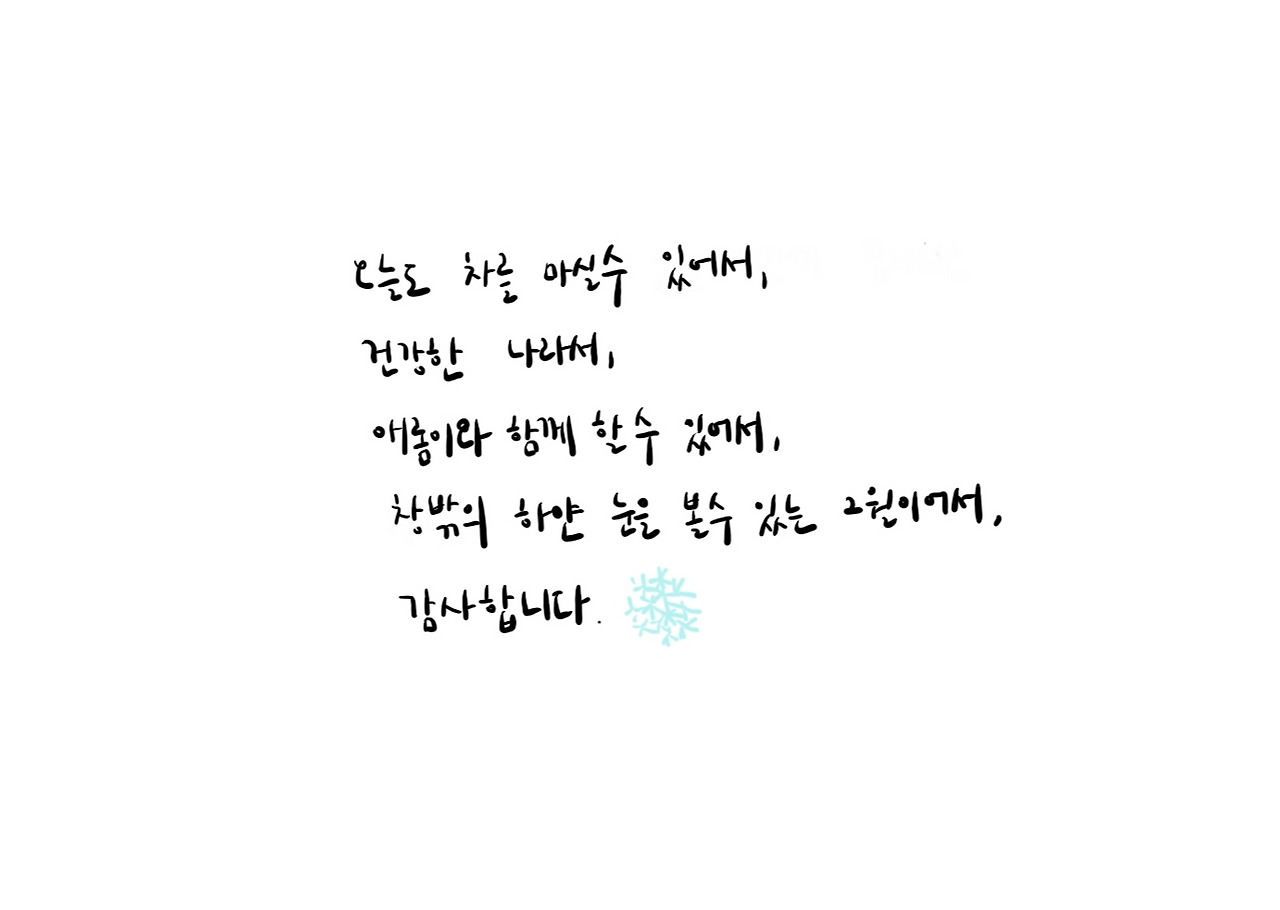 오늘도 차를 마실수 있어서,
건강한 나라서,
애롬이와 함께 할수 있어서,
창밖의 하얀 눈을 볼수 있는 2월이어서,
감사합니다.